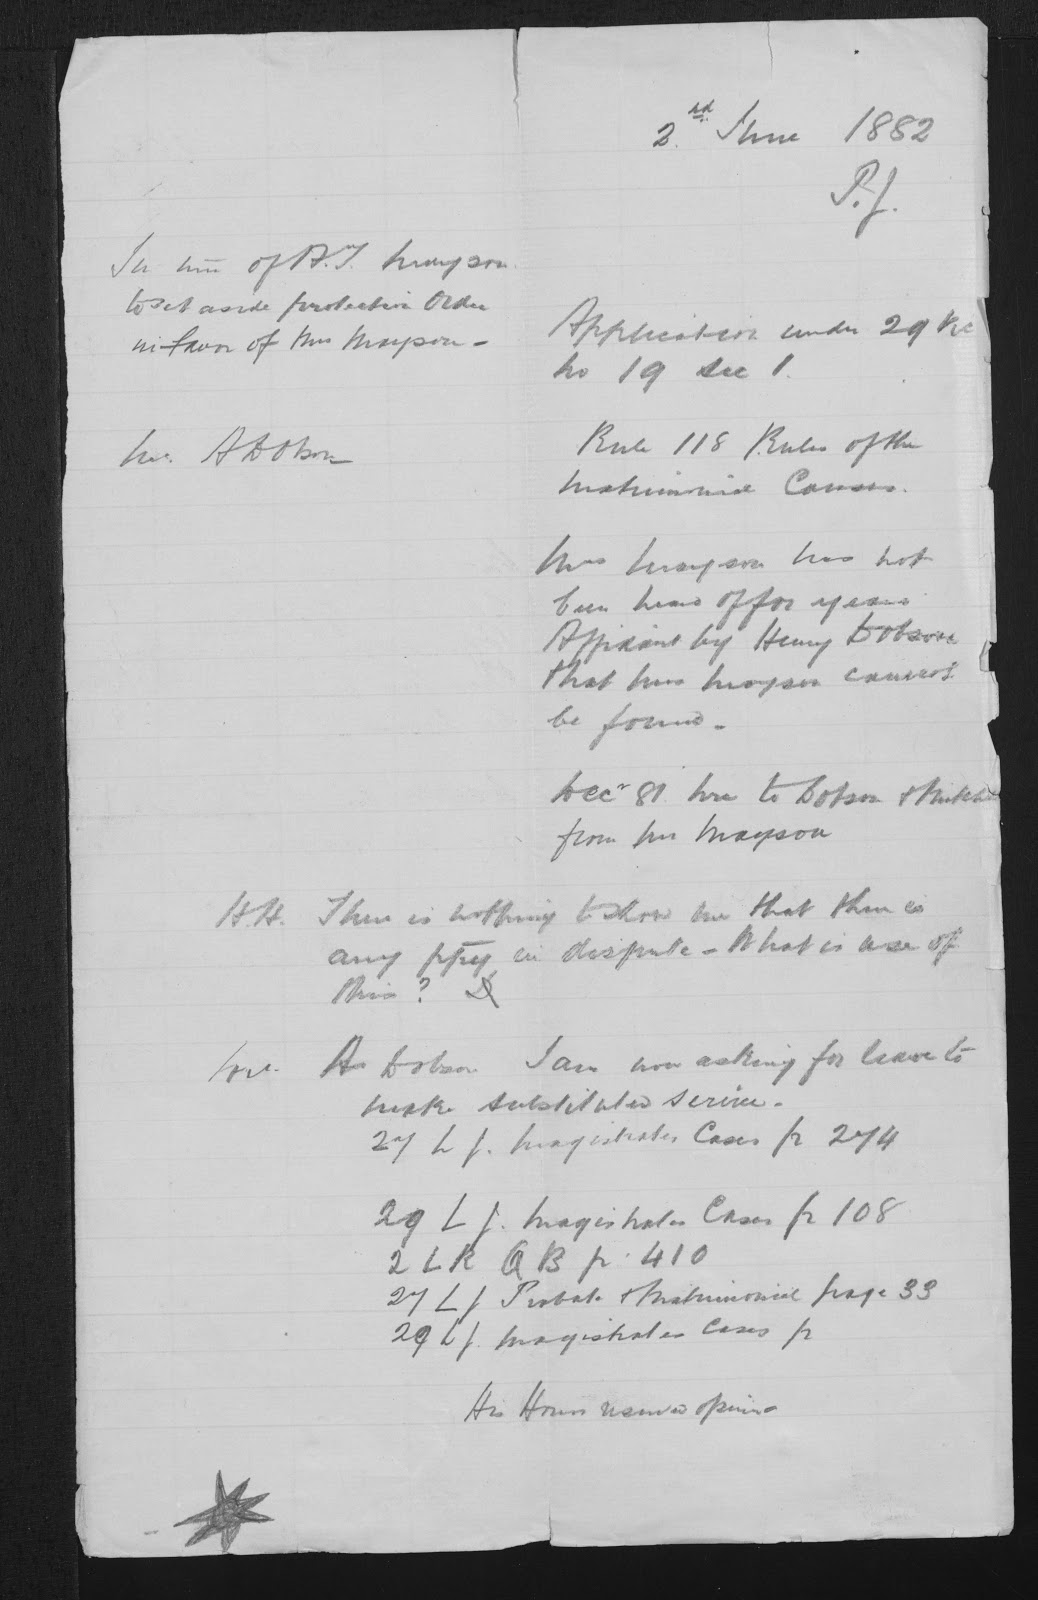 2nd June 1882
P.J.
In re of H.T. Mayson
to set aside protection Order
in favor of Mrs Mayson -
Application under 29 Vic
No 19 Sec 1.
Mr. A Dobson
Rule 118 Rules of the
Matrimonial Causes.
Mrs Mayson has not
been heard of for years
Affidavit by Henry Dobson
that Mrs Mayson cannot
be found -
Decr 81 to Dobson & Mitchell
from Mrs Mayson
H.H. There is nothing to show me that there is
any ppty in dispute - What is use of
this?
A Dobson I am now asking for leave to
make substituted service -
27 L J. Magistrates Cases p 274
29 L J. Magistrates Cases p 108
2 L R Q B p. 410
27 L J Probate & Matrimonial page 33
29 L J. Magistrates Cases p
His Honor reserved opinion